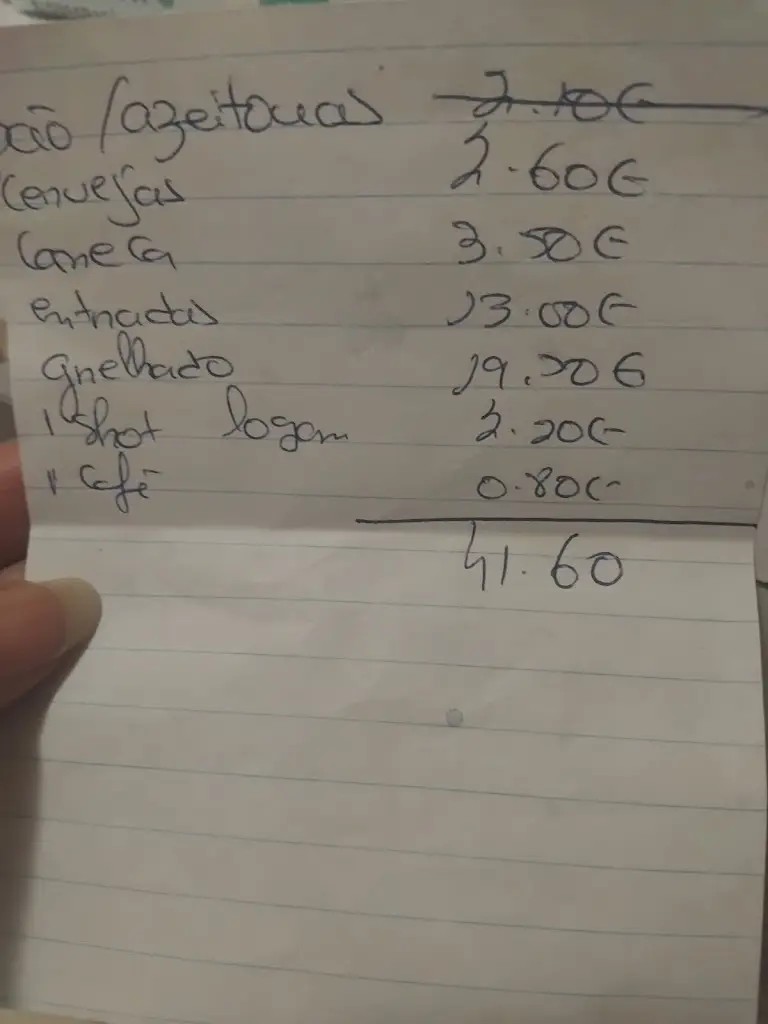 pão /azeitonas 2.10€
Cervejas 2.60€
Caneca 3.50€
entradas 13.00€
grelhado 19.20€
1 Shot 2.20€
1 Café 0.80€
41.60